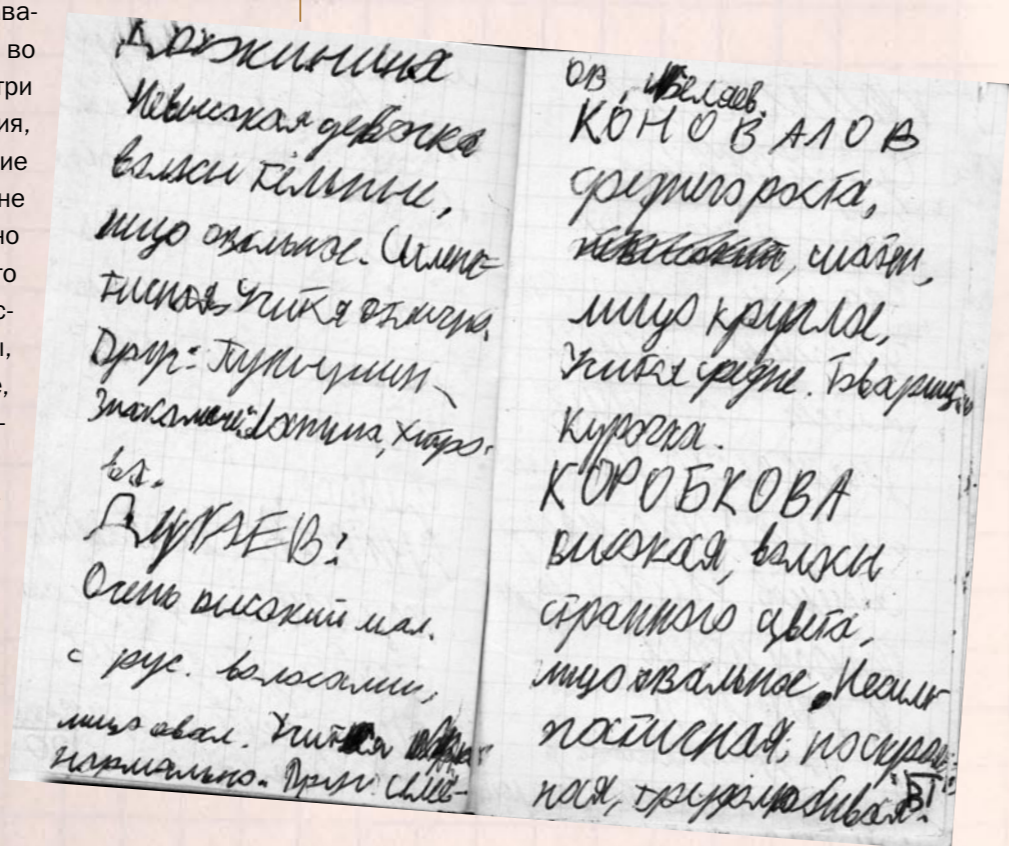 ва-
во
три
ия,
ние
не
но
го
с-
ы,
е,
-
Должинина
Невысокая девочка
волосы тёмные,
лицо овальное. Симпа-
тисная, Учится отлично,
Друг: Пупынин
Знакомый: Хитро-
ва.
ДУНАЕВ:
Очень высокий мал.
с рус. волосами,
лицо овал. Учится
нормально. Друг: Семё-
ов, Беляев.
КОНОВАЛОВ
среднего роста,
шатен,
лицо круглое,
Учится средне. Товарищ
Курочка.
КОРОБКОВА
высокая, волосы
странного цвета,
лицо овальное, Несим-
патисная,
ная, трудолюбивая.